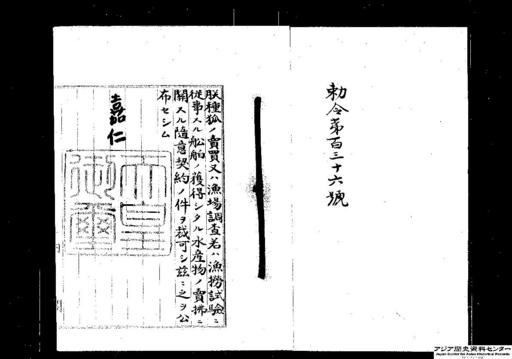 勅令第百三十六號
朕種狐ノ賣買又ハ漁場調査若ハ漁撈試驗ニ
從事スル船舶ノ獲得シタル水産物ノ賣拂ニ
關スル隨意契約ノ件ヲ裁可シ玆ニ之ヲ公
布セシム
嘉仁
天皇
御璽
アジア歴史資料センター
Japan Center for Asian Historical Records